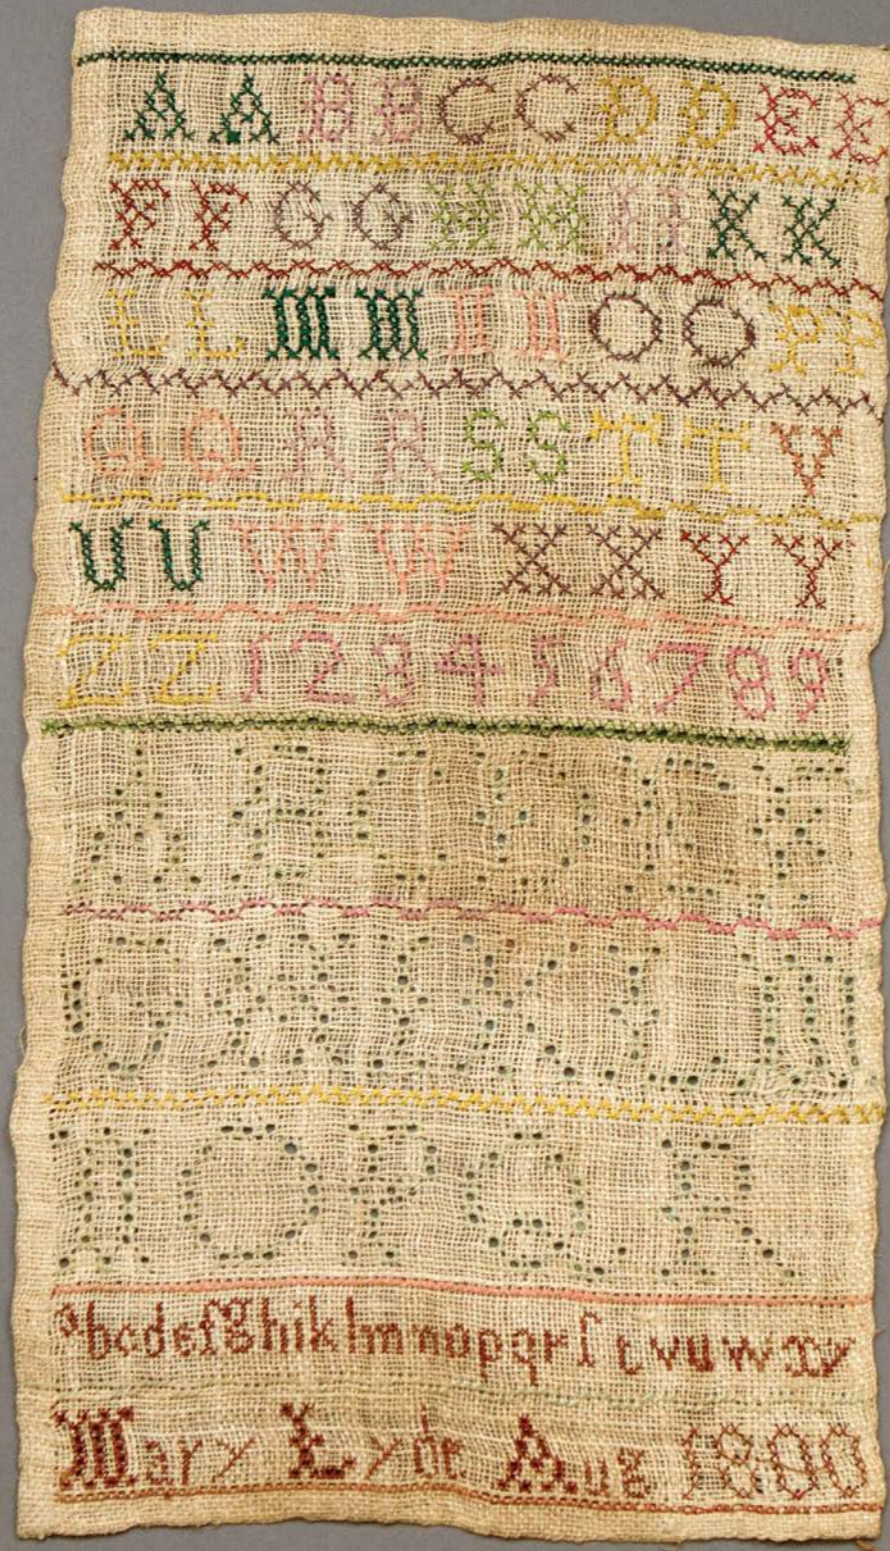 A A B B C C D D E E
F F G G H H I I K K
L L M M N N O O P P
Q Q R R S S T T V
U U W W X X Y Y
Z Z 1 2 3 4 5 6 7 8 9
A B C D E F
G H I K L M
N O P Q R
abcdefghiklmnopqrſtvuwxy
Mary Lyde Aug 1800